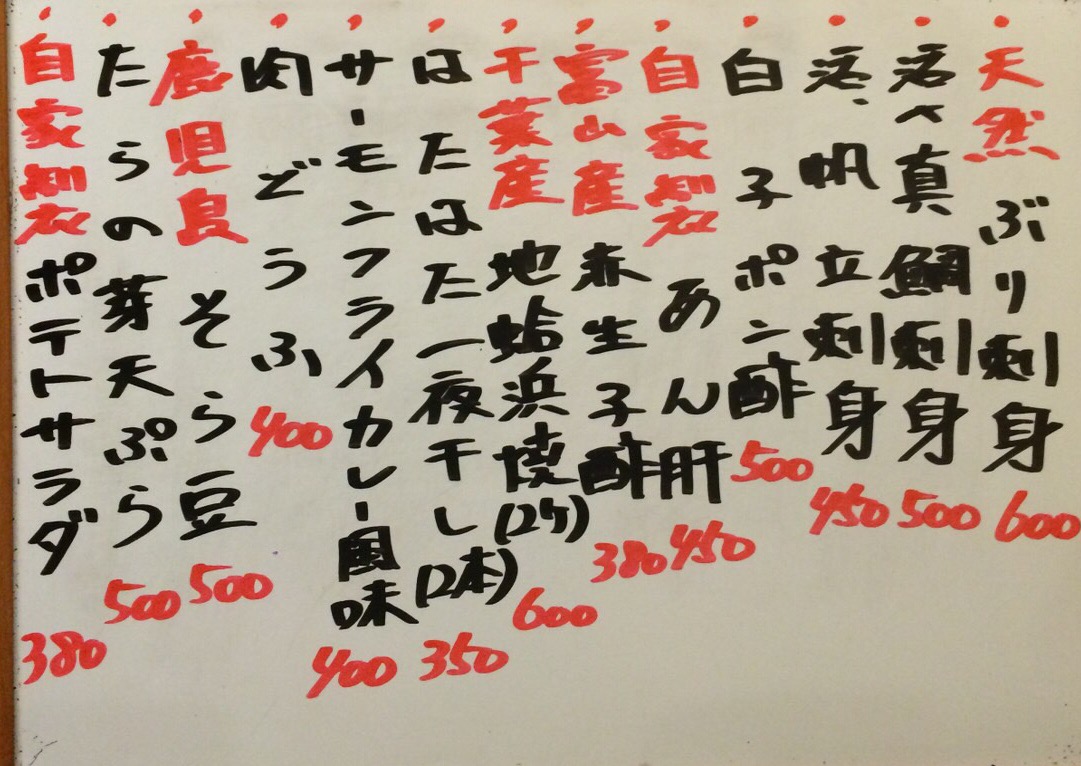 天然ぶり刺身 600
活〆真鯛刺身 500
活帆立刺身 450
白子ポン酢 500
自家製あん肝 450
富山産赤生子酢 380
千葉産地蛤浜焼(2ケ) 600
はたはた一夜干し(2本) 350
サーモンフライカレー風味 400
肉どうふ 400
鹿児島そら豆 500
たらの芽天ぷら 500
自家製ポテトサラダ 380